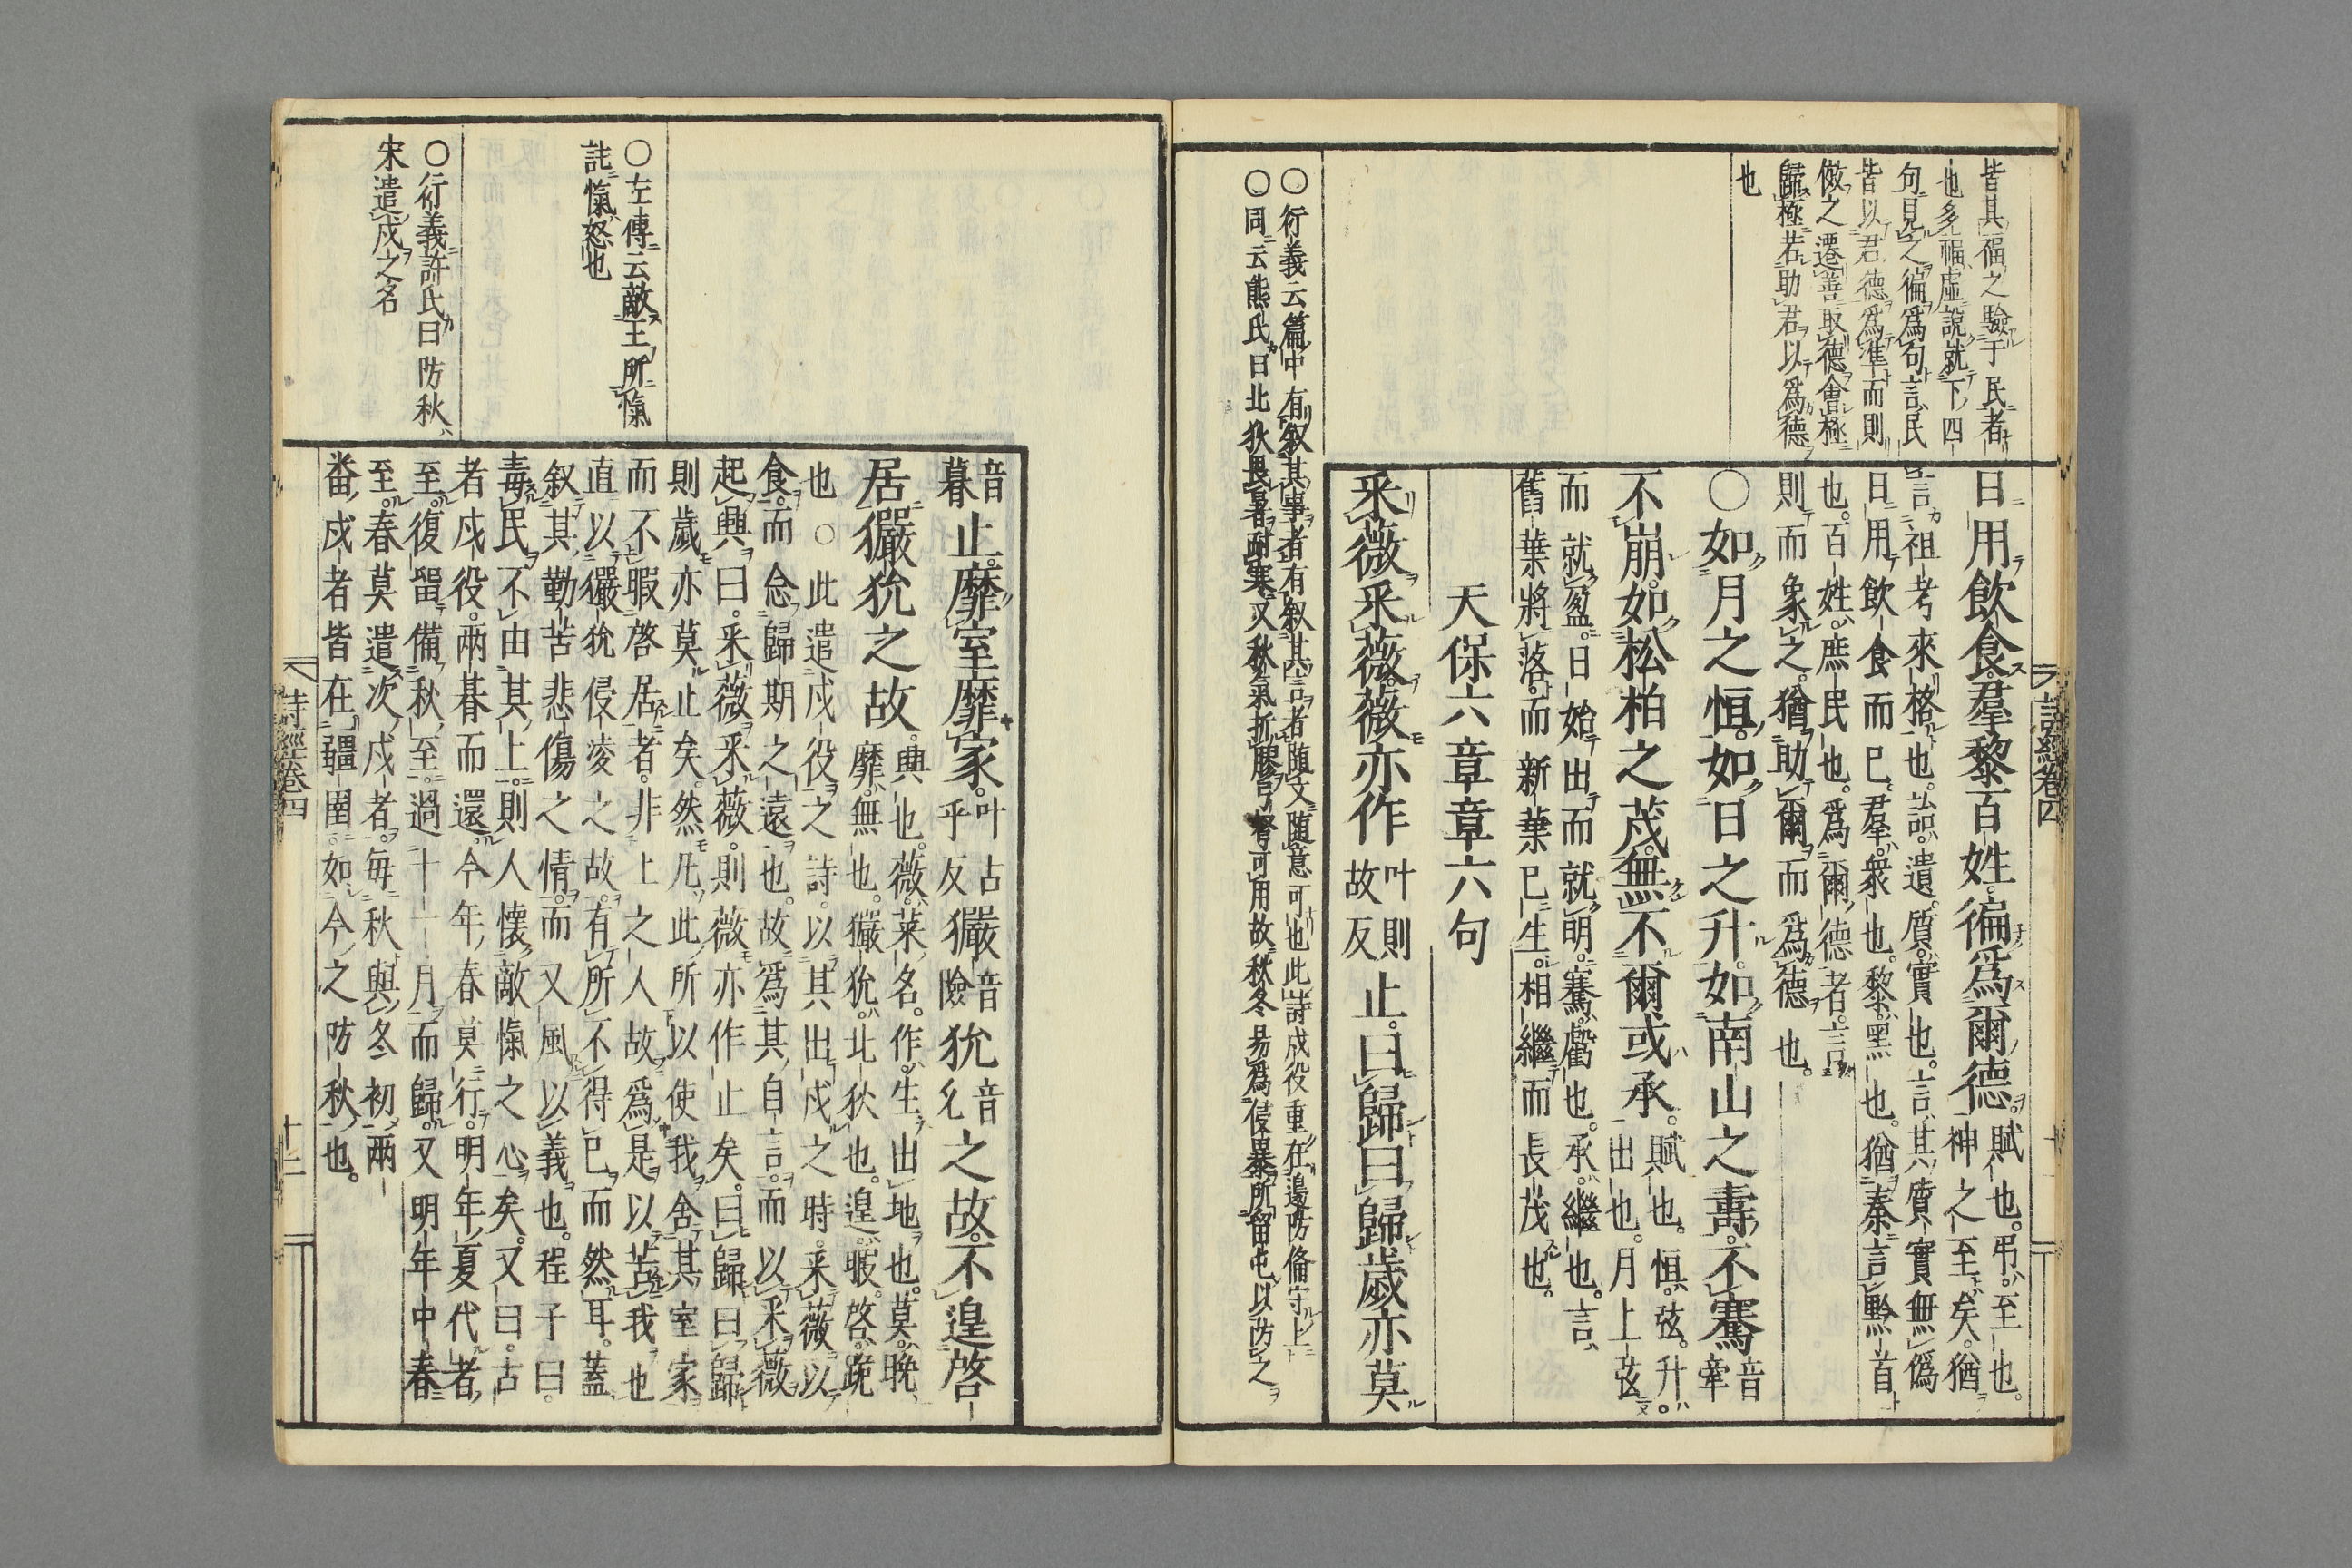 皆其福之驗于民者
也多福虛說就下四
句見之徧爲句言民
皆以君德爲準而則
傚之遷善取德會極
歸極若助君以爲德
也
日用飮食羣黎百姓徧爲爾德
賦也弔至也
神之至矣猶
言祖考來格也詒遺質實也言其質實無僞
日用飮食而已羣衆也黎黑也猶秦言黔首
也百姓庶民也爲爾德者言
則而象之猶助爾而爲德也
○如月之恒如日之升如南山之壽不騫
音
牽
不崩如松柏之茂無不爾或承
賦也恒弦升
出也月上弦
而就盈日始出而就明騫虧也承繼也言
舊葉將落而新葉已生相繼而長茂也
天保六章章六句
采薇采薇薇亦作
叶則
故反
止曰歸曰歸歲亦莫
○衍義云篇中有叙其事者有叙其言者隨文隨意可也此詩戍役重在邊防備守上
○同云熊氏曰北狄畏暑耐寒又秋氣折膠弩可用故秋冬易爲侵暴所留屯以防之
詩經卷四
○左傳云敵王所愾
註愾怒也
○衍義許氏曰防秋
宋遣戍之名
音
暮
止靡室靡家
叶古
乎反
玁
音
險
狁
音
允
之故不遑啓
居玁狁之故
興也薇菜名作生出地也莫晚
靡無也玁狁北狄也遑暇啓跪
也○此遣戍役之詩以其出戍之時采薇以
食而念歸期之遠也故爲其自言而以采薇
起興曰采薇采薇則薇亦作止矣曰歸曰歸
則歲亦莫止矣然凡此所以使我舍其室家
而不暇啓居者非上之人故爲是以苦我也
直以玁狁侵凌之故有所不得已而然耳蓋
叙其勤苦悲傷之情而又風以義也程子曰
毒民不由其上則人懷敵愾之心矣又曰古
者戍役兩朞而還今年春莫行明年夏代者
至復留備秋至過十一月而歸又明年中春
至春莫遣次戍者每秋與冬初兩
番戍者皆在疆圉如今之防秋也
詩經卷四
十二